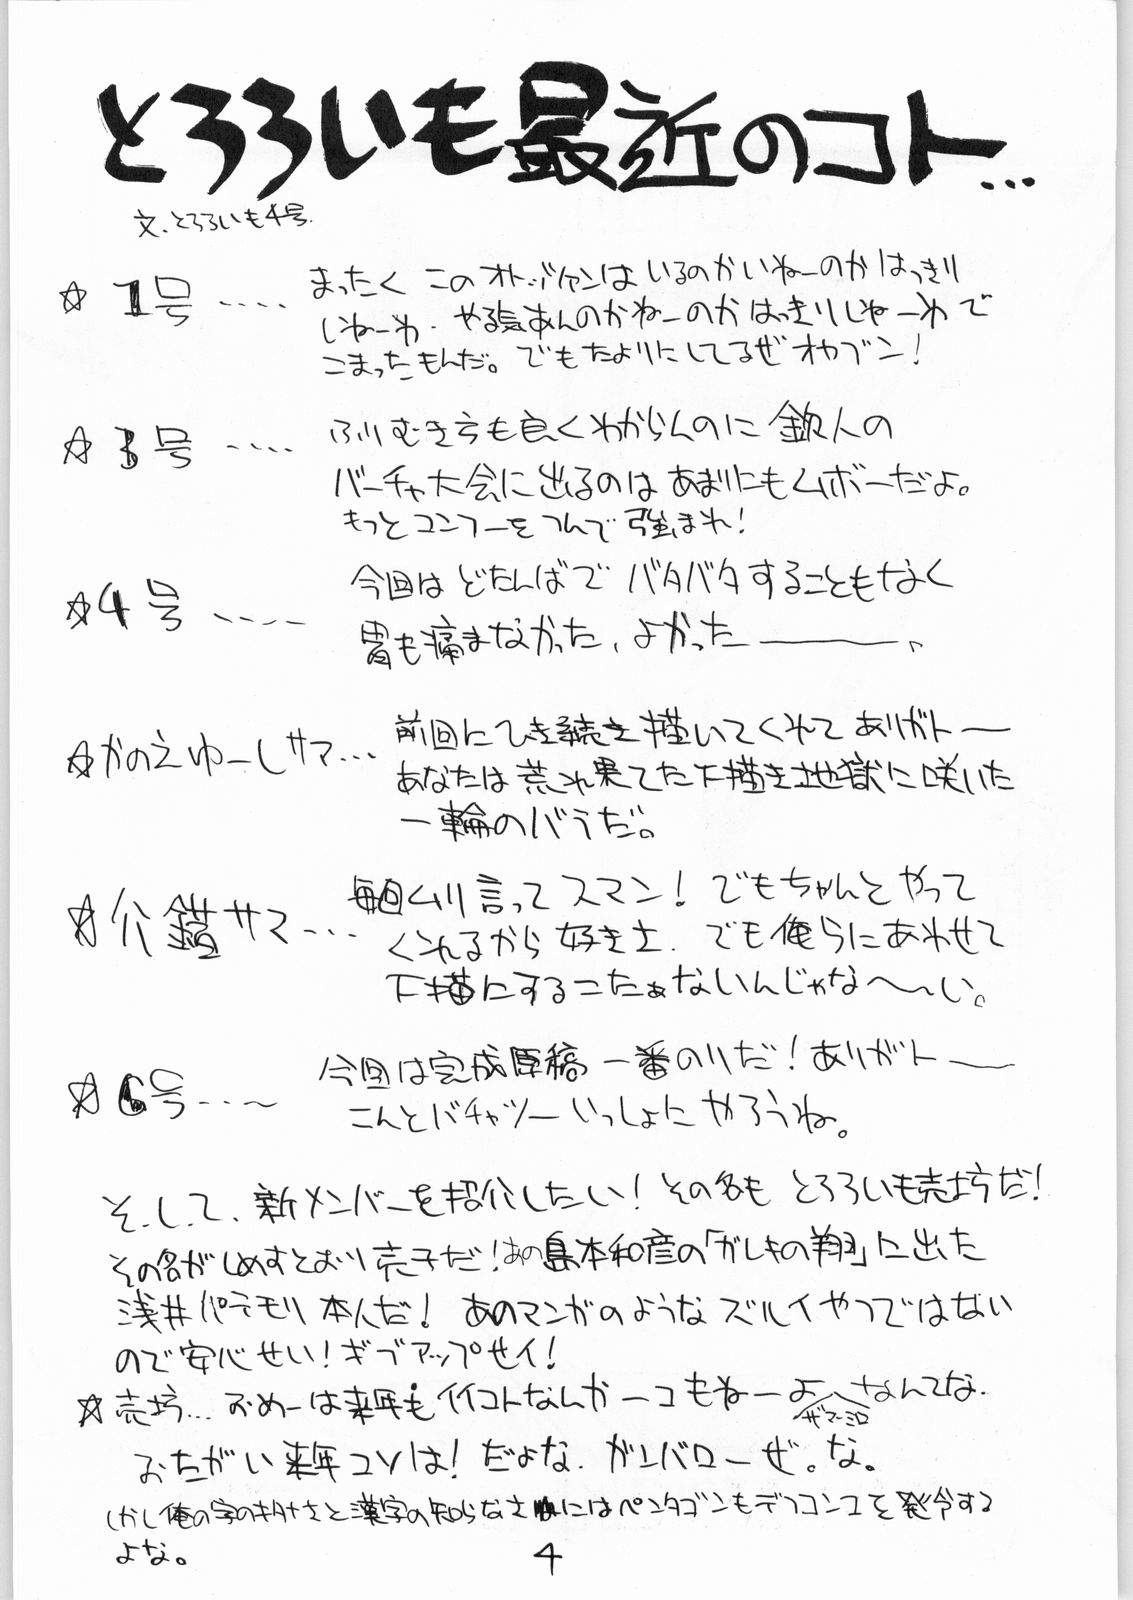 とろろいも最近のコト…
文、とろろいも4号.
☆ 1号 ‥‥ まったく このオトッツァンは いるのかいねーのか はっきり
しねーわ. やる気あんのかねーのか はっきりしねーわ で
こまったもんだ。でもたよりにしてるぜ オヤブン!
☆ 3号 ‥‥ ふりむき方も良くわからんのに 鉄人の
バーチャ大会に出るのは あまりにもムボーだよ。
もっと コンフーを つんで 強まれ!
☆ 4号 ‥‥ 今回は どたんばで バタバタすることもなく
胃も痛まなかった、よかったーーー、
☆ かのえゆーしサマ… 前回にひき続き描いてくれて ありがトー
あなたは 荒れ果てた下描き地獄に咲いた
一輪のバラだ。
☆ 介錯サマ… 毎回ムリ言って スマン! でもちゃんと やって
くれるから 好きさ. でも俺らにあわせて
下描にするこたぁないんじゃな〜〜い。
☆ 6号‥〜 今回は完成原稿 一番のりだ! ありがトー
こんどバチャツー いっしょに やろうね。
そ.し.て. 新メンバーを紹介したい! その名も とろろいも売坊だ!
その名がしめすとおり 売子だ! あの島本和彦の「ガレキの翔」に出た
浅井パテモリ 本人だ! あのマンガのような ズルイやつではない
ので 安心せい! ギブアップせイ!
☆ 売坊… おめーは来年も イイコトなんか一コもねーよ なんてな.
ザマーミロ
おたがい 来年コソは! だよな. ガンバローぜ。な。
しかし俺の字のキタナさと漢字の知らなさにはペンタゴンもデフコン1を発令する
よな。
4